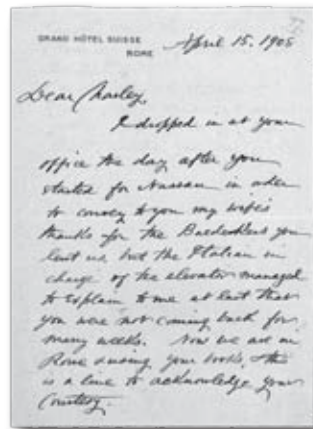 GRAND HÔTEL SUISSE
ROME
April 15, 1905
Dear Charley,
I dropped in at your
office the day after you
started for Nassau in order
to convey to you my wife's
thanks for the Baedekers you
lent us but the Italian in
charge of the elevator managed
to explain to me at last that
you were not coming back for
many weeks. Now we are in
Rome using your books, & this
is a line to acknowledge your
Courtesy.